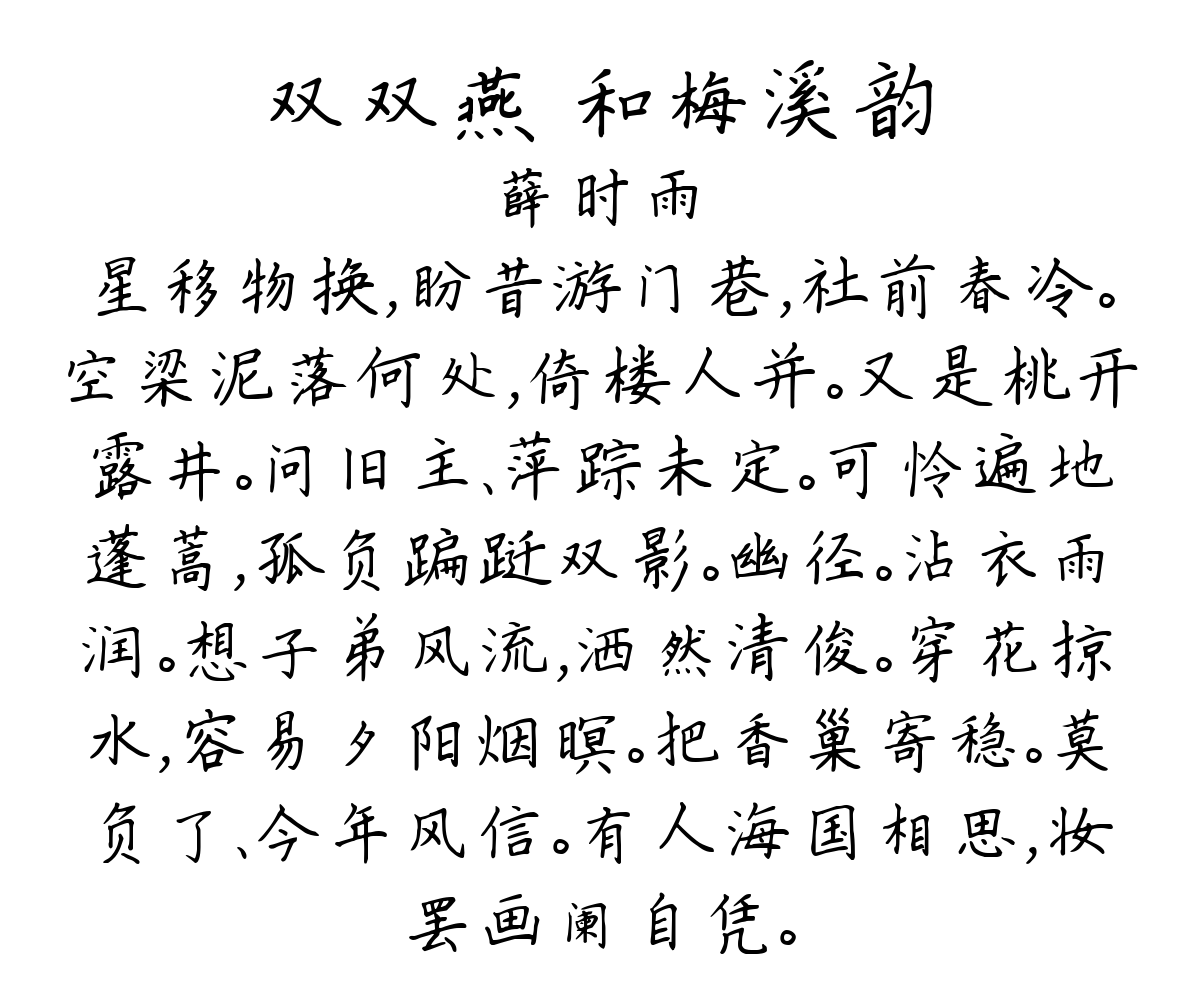 双双燕 和梅溪韵
薛时雨
星移物换,盼昔游门巷,社前春冷。
空梁泥落何处,倚楼人并。又是桃开
露井。问旧主、萍踪未定。可怜遍地
蓬蒿,孤负蹁跹双影。幽径。沾衣雨
润。想子弟风流,洒然清俊。穿花掠
水,容易夕阳烟暝。把香巢寄稳。莫
负了、今年风信。有人海国相思,妆
罢画阑自凭。